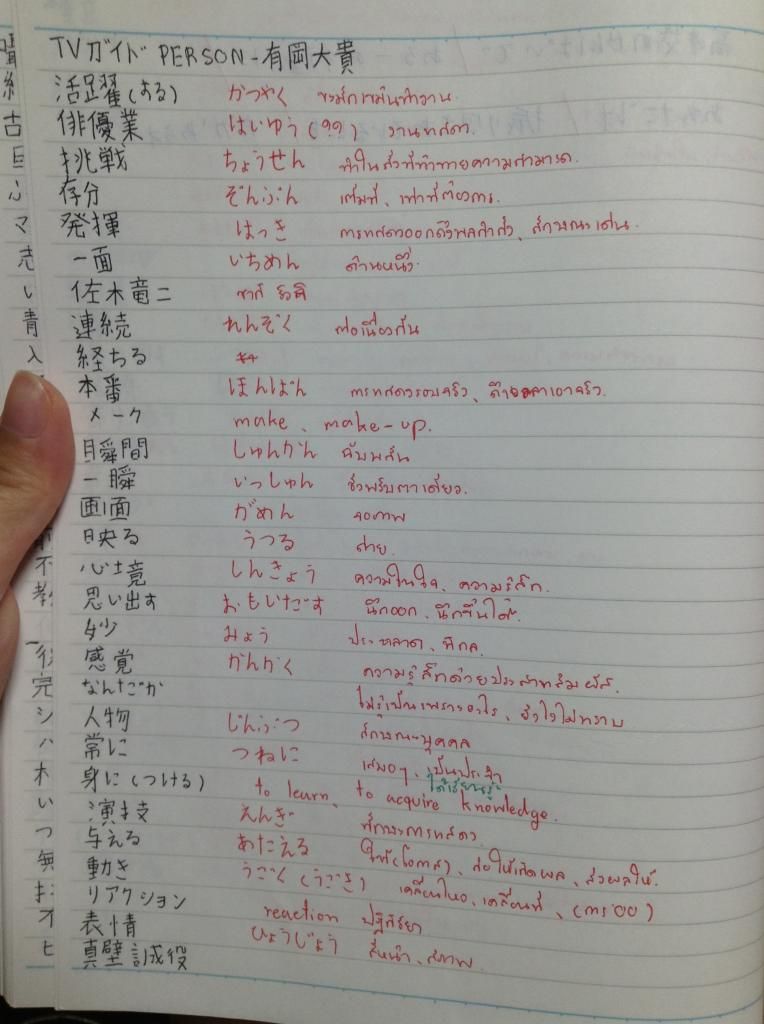 TVガイド PERSON - 有岡大貴
活躍(する) かつやく ขะมักเขม้นทำงาน
俳優業 はいゆう(??) งานแสดง
挑戦 ちょうせん ทำในสิ่งที่ท้าทายความสามารถ
存分 ぞんぶん เต็มที่、เท่าที่ต้องการ
発揮 はっき การแสดงออกถึงพลกำลัง、ลักษณะเด่น
一面 いちめん ด้านหนึ่ง
佐木竜二 ซากิ ริวจิ
連続 れんぞく ต่อเนื่องกัน
経ちる **
本番 ほんばん การแสดงรอบจริง、ถ่ายเอาจริง
メーク make、make-up.
瞬間 しゅんかん ฉับพลัน
一瞬 いっしゅん ชั่วพริบตาเดียว
画面 がめん จอภาพ
映る うつる ฉาย
心境 しんきょう ความในใจ、ความรู้สึก
思い出す おもいだす นึกออก、นึกขึ้นได้
妙 みょう ประหลาด、พิกล
感覚 かんかく ความรู้สึกด้วยประสาทสัมผัส
なんだか ไม่รู้เป็นเพราะอะไร、ยังไงไม่ทราบ
人物 じんぶつ ลักษณะบุคคล
常に つねに เสมอๆ、เป็นประจำ
ได้เรียนรู้
身に(つける) to learn、to acquire knowledge.
演技 えんぎ ทักษะการแสดง
与える あたえる ให้(โอกาส)、ส่งให้เกิดผล、ส่งผลให้
動き うごく(うごき) เคลื่อนไหว、เคลื่อนที่、(การ〇〇)
リアクション reaction ปฏิกิริยา
表情 ひょうじょう สีหน้า、สภาพ
真壁誠役